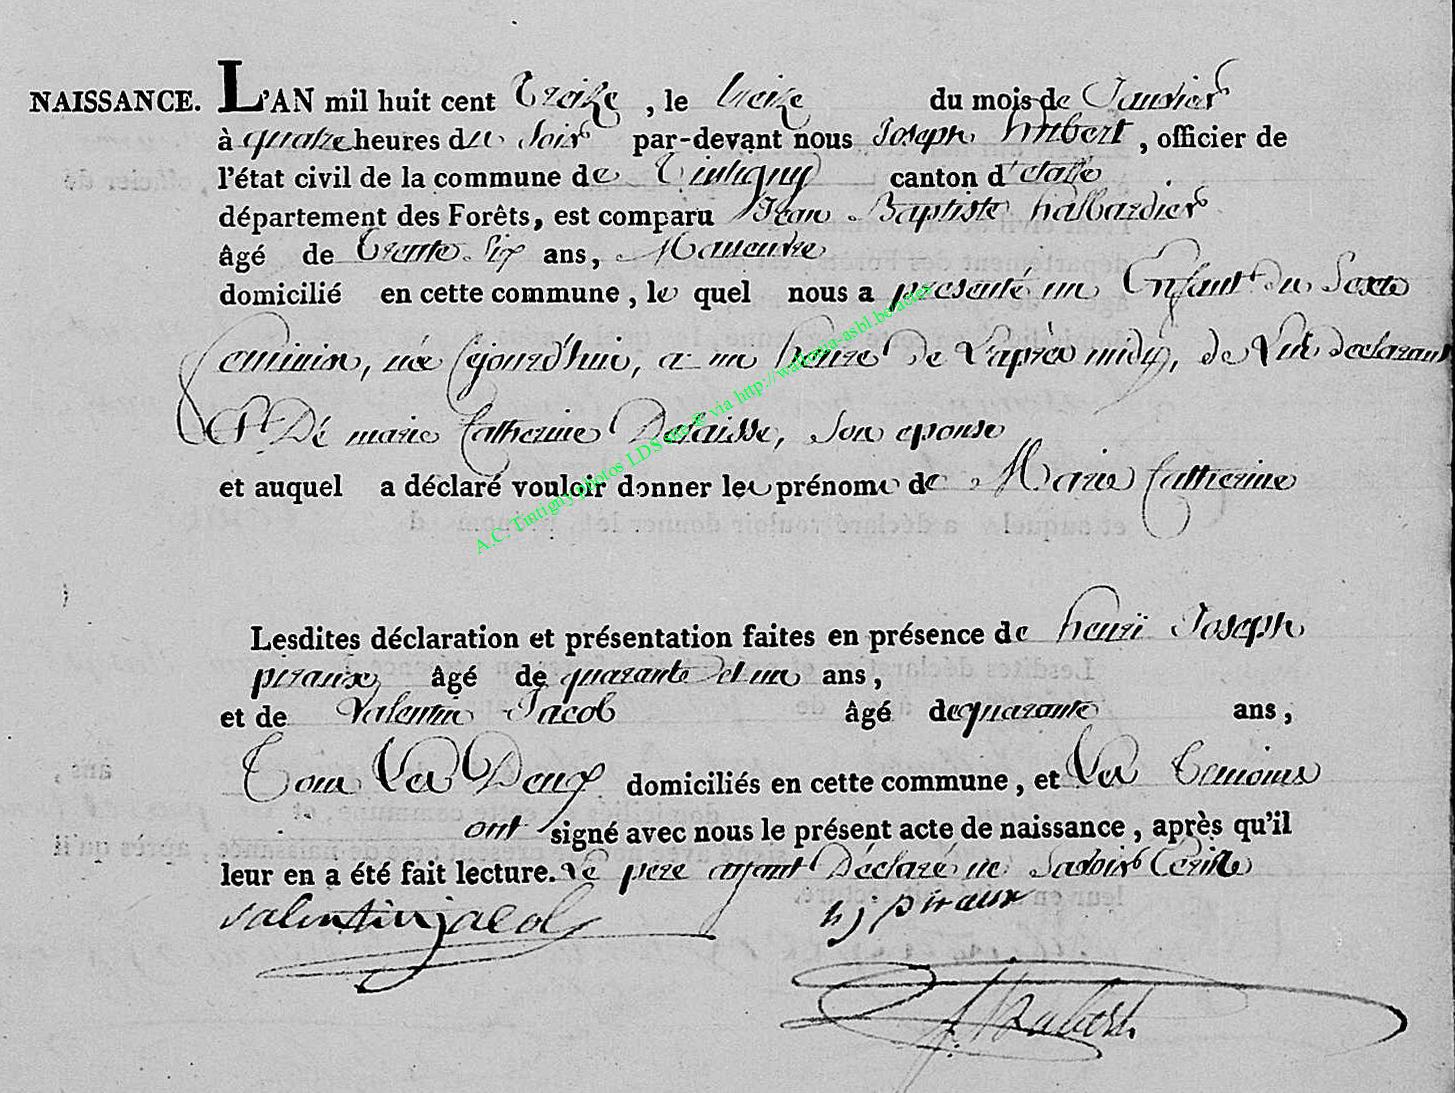 NAISSANCE. L'AN mil huit cent Treize, le treize du mois de Janvier
à quatre heures du Soir par-devant nous Joseph hubert, officier de
l'état civil de la commune de Tintigny canton d'etalle
département des Forêts, est comparu Jean Baptiste hallbardier
âgé de trente Six ans, Manœuvre
domicilié en cette commune, le quel nous a presenté un Enfant du Sexte
feminin, née Cejourd'hui, a un heure de L'après midy, de Lui declarant
Et Dé marie Catherine, Son epouse
et auquel a déclaré vouloir donner les prénoms de Marie Catherine
Lesdites déclaration et présentation faites en présence de henri Joseph
piraux, âgé de quarante et un ans,
et de Valentin Jacob âgé de quarante ans,
Tous Les Deux domiciliés en cette commune, et Les temoins
ont signé avec nous le présent acte de naissance, après qu'il
leur en a été fait lecture. Le pere ayant Déclaré ne Savoir Ecrire
valentin jacob hj piraux
J. Hubert.
A.C. Tintigny photos LDS via http://wallonia-asbl.be/actes